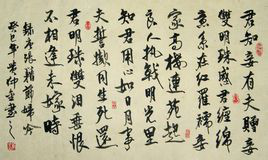 君知妾有夫贈妾
雙明珠感君纏綿
意系在紅羅襦妾
家高樓連苑起
良人執戟明光里
知君用心如日月事
夫誓擬同生死還
君明珠雙淚垂恨
不相逢未嫁時
錄唐張籍節婦吟
癸巳年